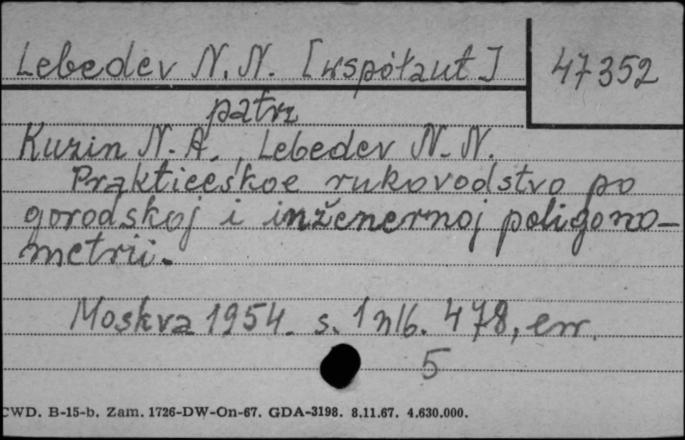 Lebedev N. N. [współaut.] 47352
patrz
Kuzin N. A., Lebedev N. N.
Praktičeskoe rukovodstvo po
gorodskoj i inženernoj poligono-
metrii.
Moskva 1954. s. 1 nlb. 478, err.
5
CWD. B-15-b. Zam. 1726-DW-On-67. GDA-3198. 8.11.67. 4.630.000.